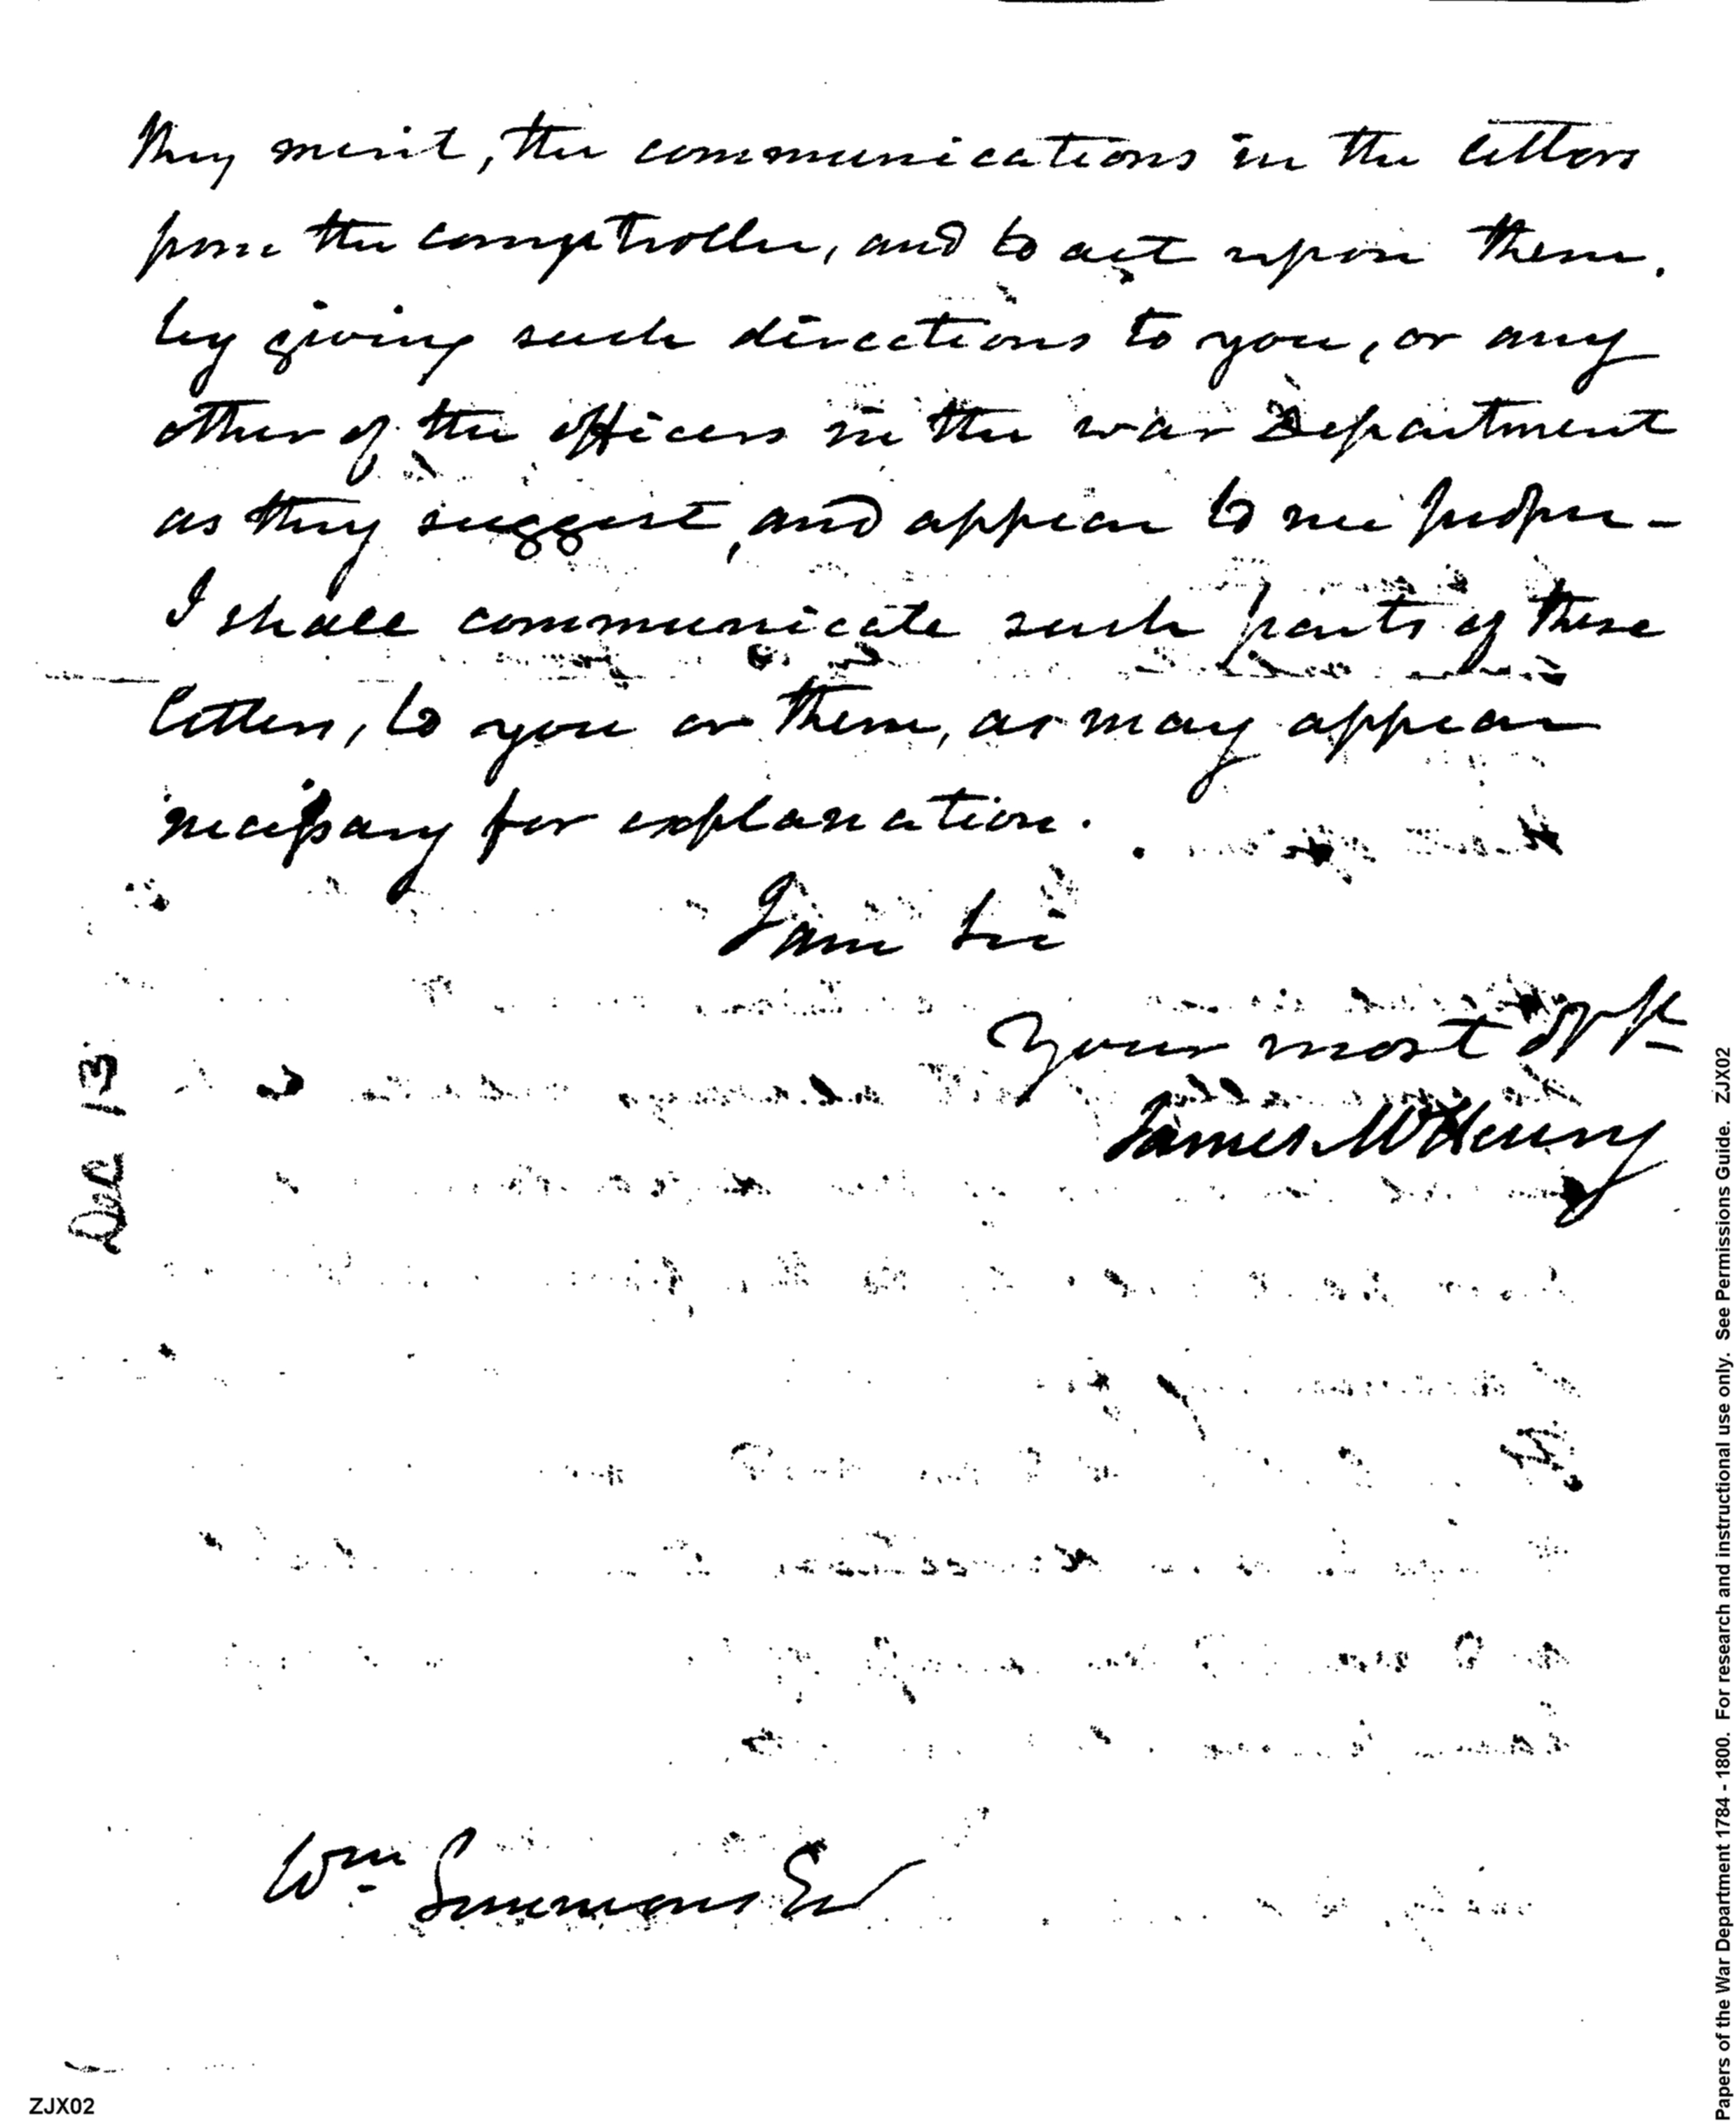 they merit, the communications in the letters
from the comptroller, and to act upon them.
by giving such directions to you, or any
other of the officers in the war Department
as they suggest, and appear to me proper -
I shall communicate such parts of these
letters, to you or them, as may appear
necessary for explanation.
I am Sir
Your most Obt
James McHenry
Dec 13
Wm Simmons Es
ZJX02
Papers of the War Department 1784 - 1800. For research and instructional use only. See Permissions Guide. ZJX02